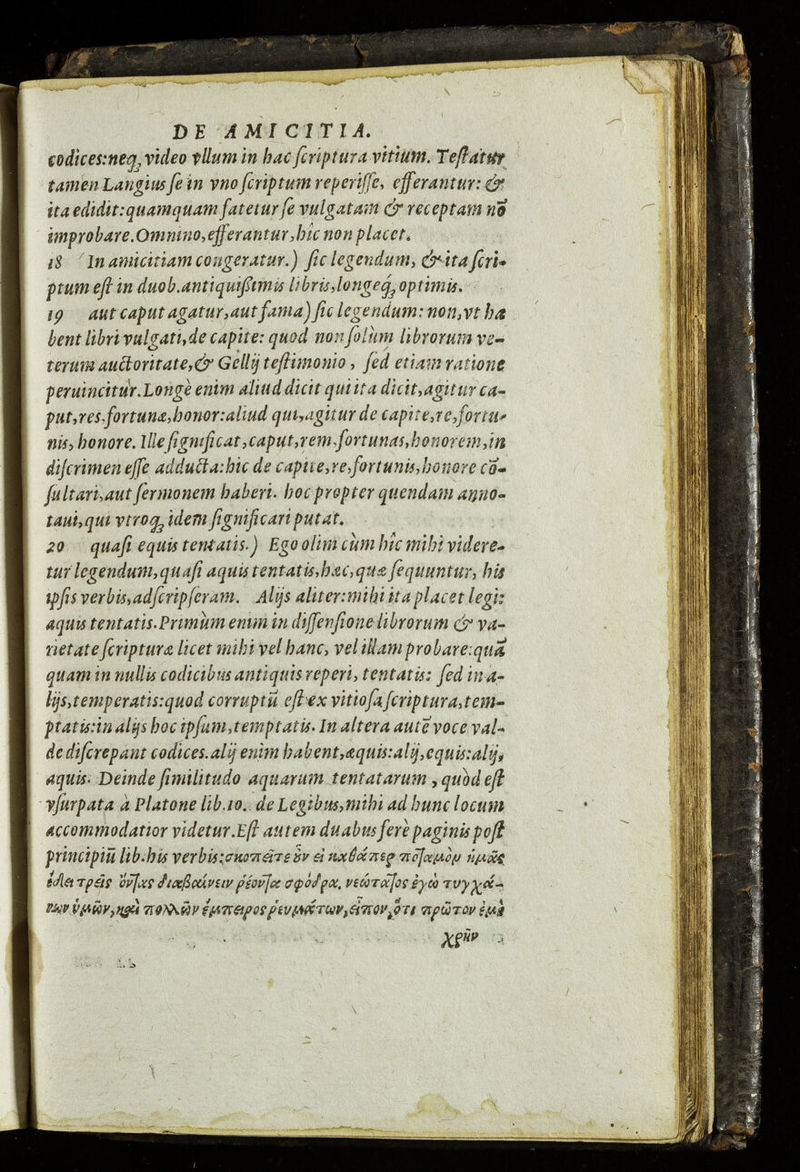 DE AMICITIA.
codices:neq; video vllum in hac scriptura vitium. Testatur
tamen Langius se in vno scriptum reperisse, efferantur: &
ita edidit: quamquam fatetur se vulgatam & receptam nō
improbare. Omnino, efferantur, hic non placet.
18 In amicitiam congeratur.) sic legendum, & ita scri-
ptum est in duob. antiquißimis libris, longeq; optimis.
19 aut caput agatur, aut fama) sic legendum: non, vt ha
bent libri vulgati, de capite: quod non solùm librorum ve-
terum auctoritate, & Gellij testimonio, sed etiam ratione
peruincitur. Longè enim aliud dicit qui ita dicit, agitur ca-
put, res. fortunæ, honor: aliud qui, agitur de capite, re, fortu-
nis, honore. Ille significat, caput, rem, fortunas, honorem, in
discrimen esse adducta: hic de capite, re, fortunis, honore cō-
sultari, aut sermonem haberi. hoc propter quendam anno-
taui, qui vtroq; idem significari putat.
20 quasi equis tentatis.) Ego olim cùm hîc mihi videre-
tur legendum, quasi aquis tentatis, hæc, quæ sequuntur, his
ipsis verbis, adscripseram. Alijs aliter: mihi ita placet legi:
aquis tentatis. Primùm enim in dissensione librorum & va-
rietate scripturæ licet mihi vel hanc, vel illam probare: quā
quam in nullis codicibus antiquis reperi, tentatis: sed in a-
lijs, temperatis: quod corruptū est ex vitiosa scriptura, tem-
ptatis: in alijs hoc ipsum, temptatis. In altera autē voce val-
de discrepant codices. alij enim habent, æquis: alij, equis: alij,
aquis. Deinde similitudo aquarum tentatarum, quod est
vsurpata à Platone lib. 10. de Legibus, mihi ad hunc locum
accommodatior videtur. Est autem duabus ferè paginis post
principiū lib. his verbis: σκοπεῖτε ȣν εἰ καθάπερ ποταμὸν ἡμᾶς
ἔδει τρεῖς ὄντας διαβαίνειν ῥέοντα σφόδρα. νεώτατος ἐγὼ τυγχά-
νων ὑμῶν, καὶ πολλῶν ἔμπειρος ῥευμάτων, εἶπον, ὅτι πρῶτον ἐμὲ
χρῆν